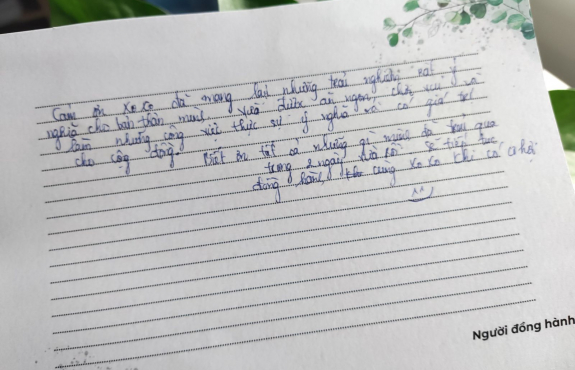 Cảm ơn Xo Xo đã mang lại những trải nghiệm rất ý
nghĩa cho bản thân mình. Vừa được ăn ngon, chơi vui và
làm những công việc thực sự ý nghĩa và có giá trị
cho cộng đồng. Biết ơn tất cả những gì mình đã trải qua
trong 2 ngày và sẽ tiếp tục
đồng hành, cùng Xo Xo khi có cơ hội
Người đồng hành